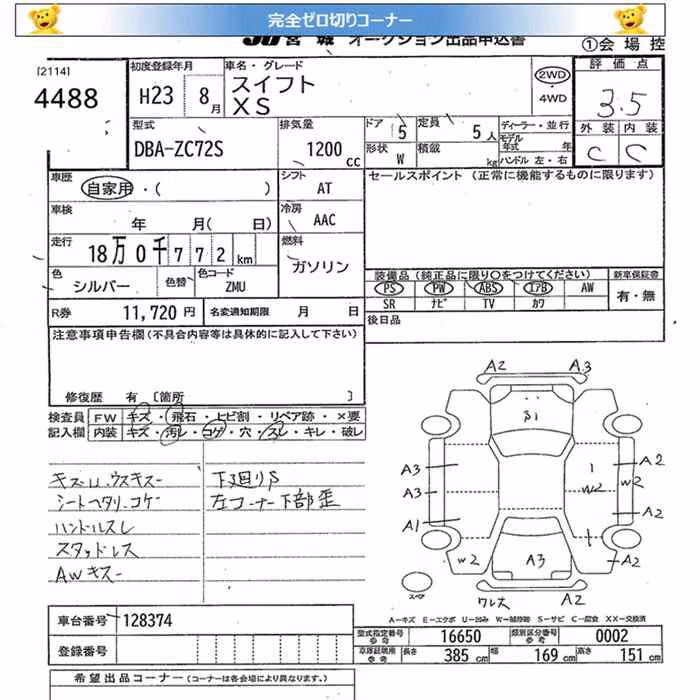 完全ゼロ切りコーナー
JU宮城 オークション出品申込書
①会場控
[2114]
4488
初度登録年月
H23 8月
車名・グレード
スイフト
XS
2WD
4WD
評価点
3.5
外装 内装
C C
型式
DBA-ZC72S
排気量
1200cc
ドア 5
形状 W
定員 5人
積載 kg
ディーラー・並行
モデル年式 年
ハンドル 左・右
車歴
自家用・( )
シフト
AT
セールスポイント (正常に機能するものに限ります)
車検
年 月( 日)
冷房
AAC
走行
18万0千772km
燃料
ガソリン
色
シルバー
色替
色コード
ZMU
装備品 (純正品に限り○をつけてください)
PS PW ABS エアB AW
SR ナビ TV カワ
新車保証書
有・無
R券 11,720円
名変通知期限 月 日
後日品
注意事項申告欄 (不具合内容等は具体的に記入して下さい)
修復歴 有 [箇所 ]
検査員記入欄
FW キズ・飛石・ヒビ割・リペア跡・×要
内装 キズ・汚レ・コゲ・穴・スレ・キレ・破レ
キズU、ウスキズー
シートヘタリ、コゲ
ハンドルスレ
スタッドレス
AWキズー
下廻りS
左コーナー下部歪
A2 A3
S1
A3
A3
A1
W2
A2
W2
A2
A2
W2
A3
ワレス A2
スペア
A-キズ E-エクボ U-凹み W-補修跡 S-サビ C-腐食 XX-交換済
車台番号 128374
登録番号
型式指定番号 参考 16650
類別区分番号 参考 0002
長さ 385cm 幅 169cm 高さ 151cm
希望出品コーナー (コーナーは各会場により異なります。)